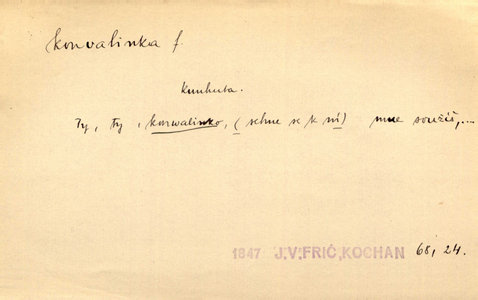 konvalinka f.
Kunhuta.
Ty, ty, konwalinko, (sehne se k ní) mne soužíš,...
1847 J.V.FRIČ,KOCHAN 68, 24.